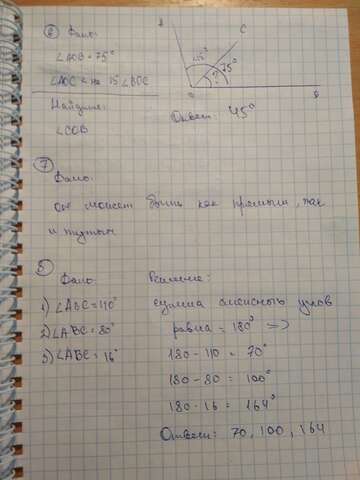 6 Дано:
∠AOB = 75°
∠AOC < на 15 ∠BOC
Найдите:
∠COB
C
75°
?
O
Ответ: 45°
7
Дано:
может быть как прямым, так
и тупым
8
Дано: Решение:
1) ∠ABC = 110° сумма смежных углов
2) ∠ABC = 80° равна = 180° =>
3) ∠ABC = 16° 180 - 110 = 70°
180 - 80 = 100°
180 - 16 = 164°
Ответ: 70, 100, 164